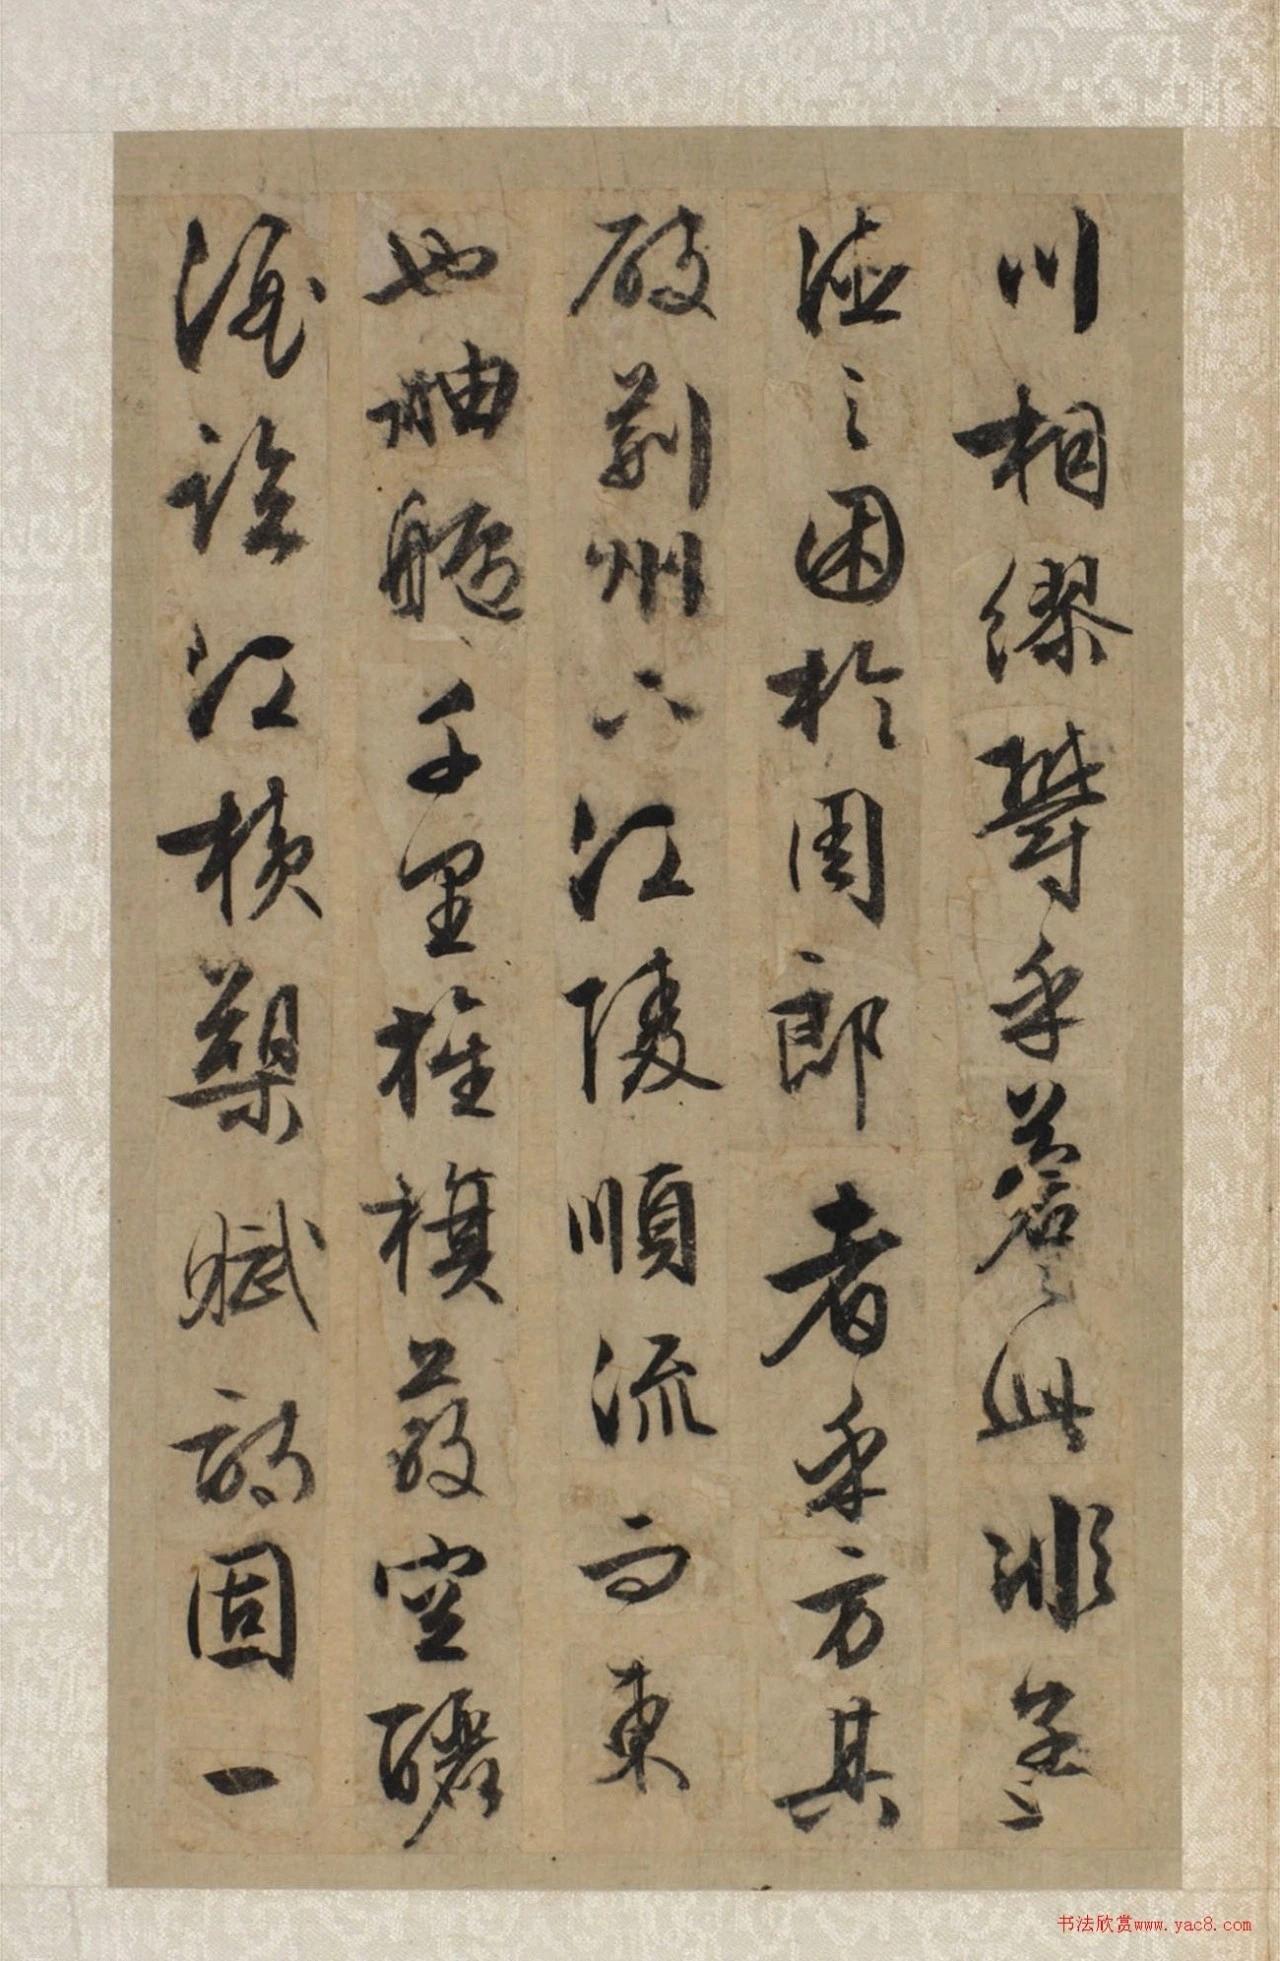 川相繆鬱乎蒼〻此非孟
德之困於周郎者乎方其
破荊州下江陵順流而東
也舳艫千里旌旗蔽空釃
酒臨江橫槊賦詩固一
书法欣赏www.yac8.com